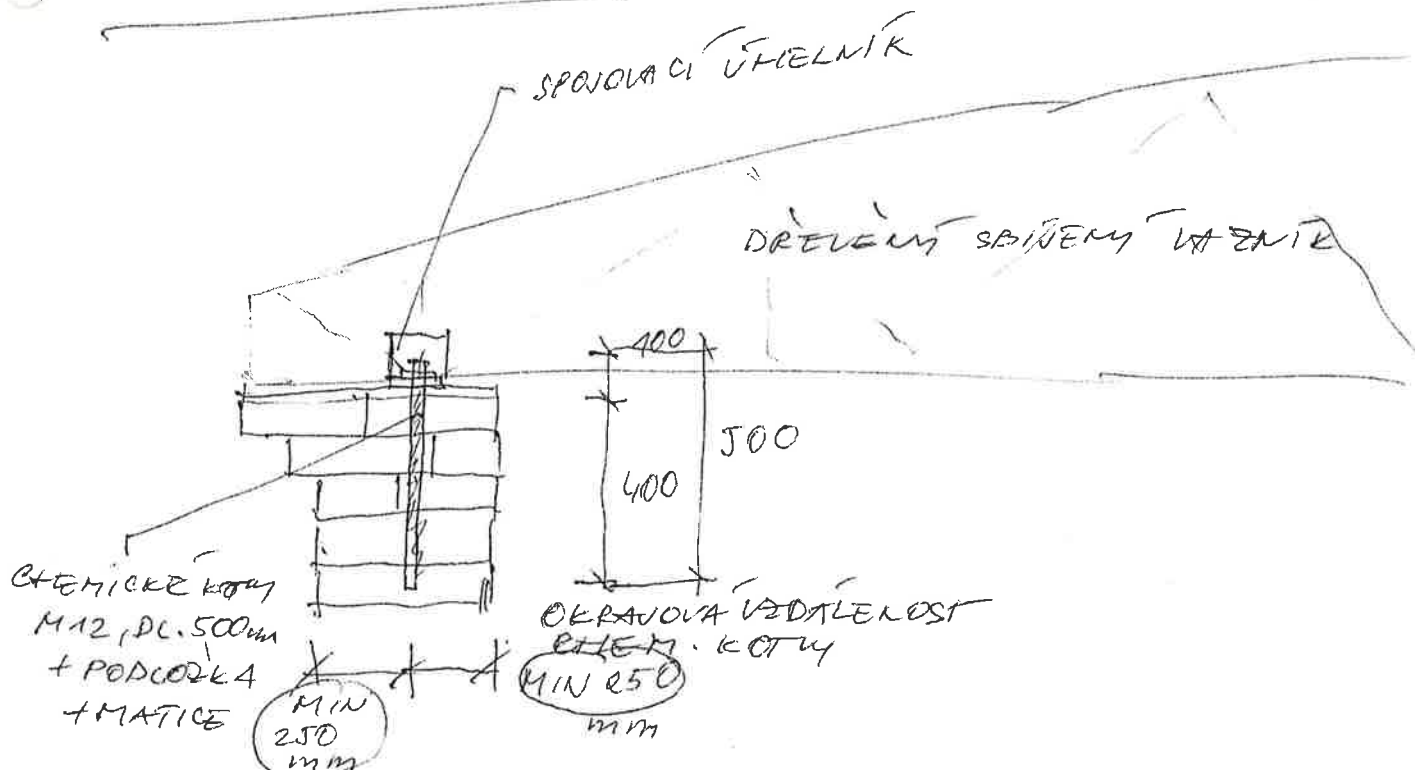 SPOJOVACÍ ÚHELNÍK
DŘEVĚNÝ SBÍJENÝ VAZNÍK
100
500
400
CHEMICKÉ KOTVY
M12, DL. 500mm
+ PODLOŽKA
+ MATICE
MIN
250
mm
OKRAJOVÁ VZDÁLENOST
CHEM. KOTVY
MIN 250
mm